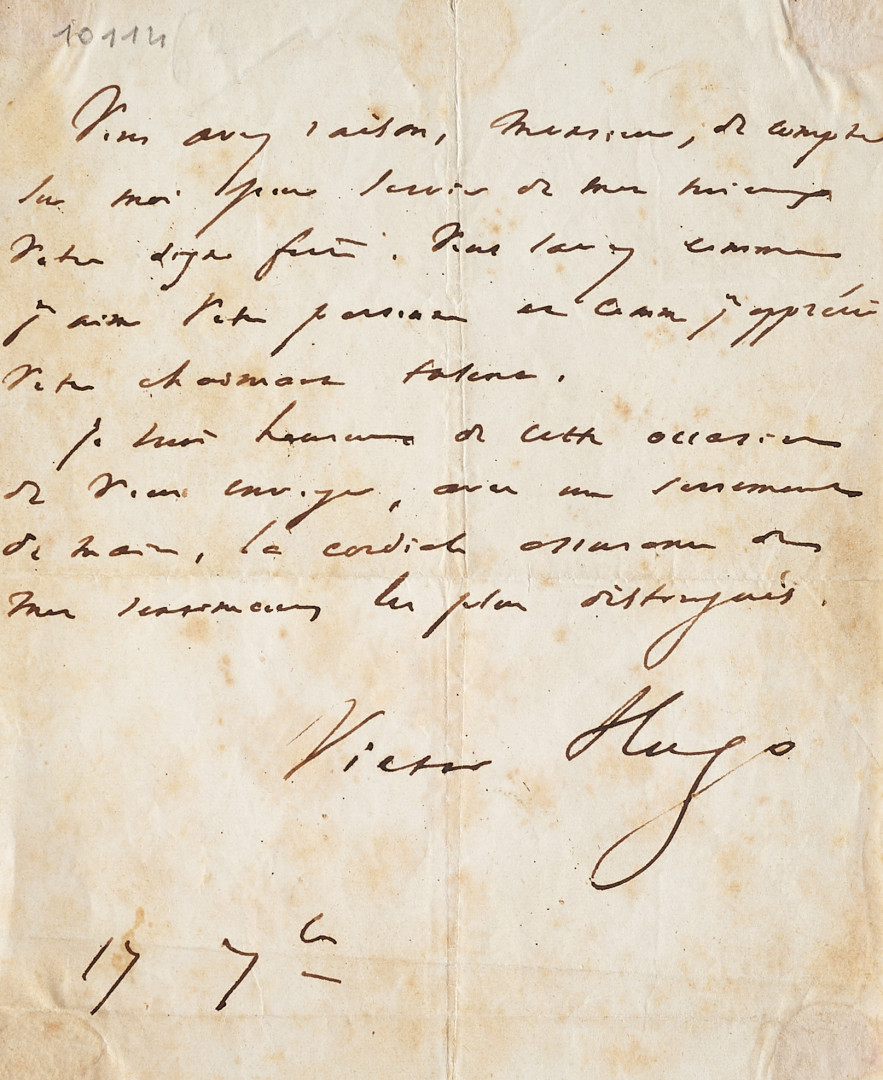 10114
Vous avez raison, Monsieur, de compter
sur moi pour servir de mon mieux
votre digne frère. Vous savez comme
j'aime votre personne et comme j'apprécie
votre charmant talent.
Je suis heureux de cette occasion
de vous envoyer, avec un serrement
de main, la cordiale assurance de
mes sentiments les plus distingués.
Victor Hugo
17 7bre